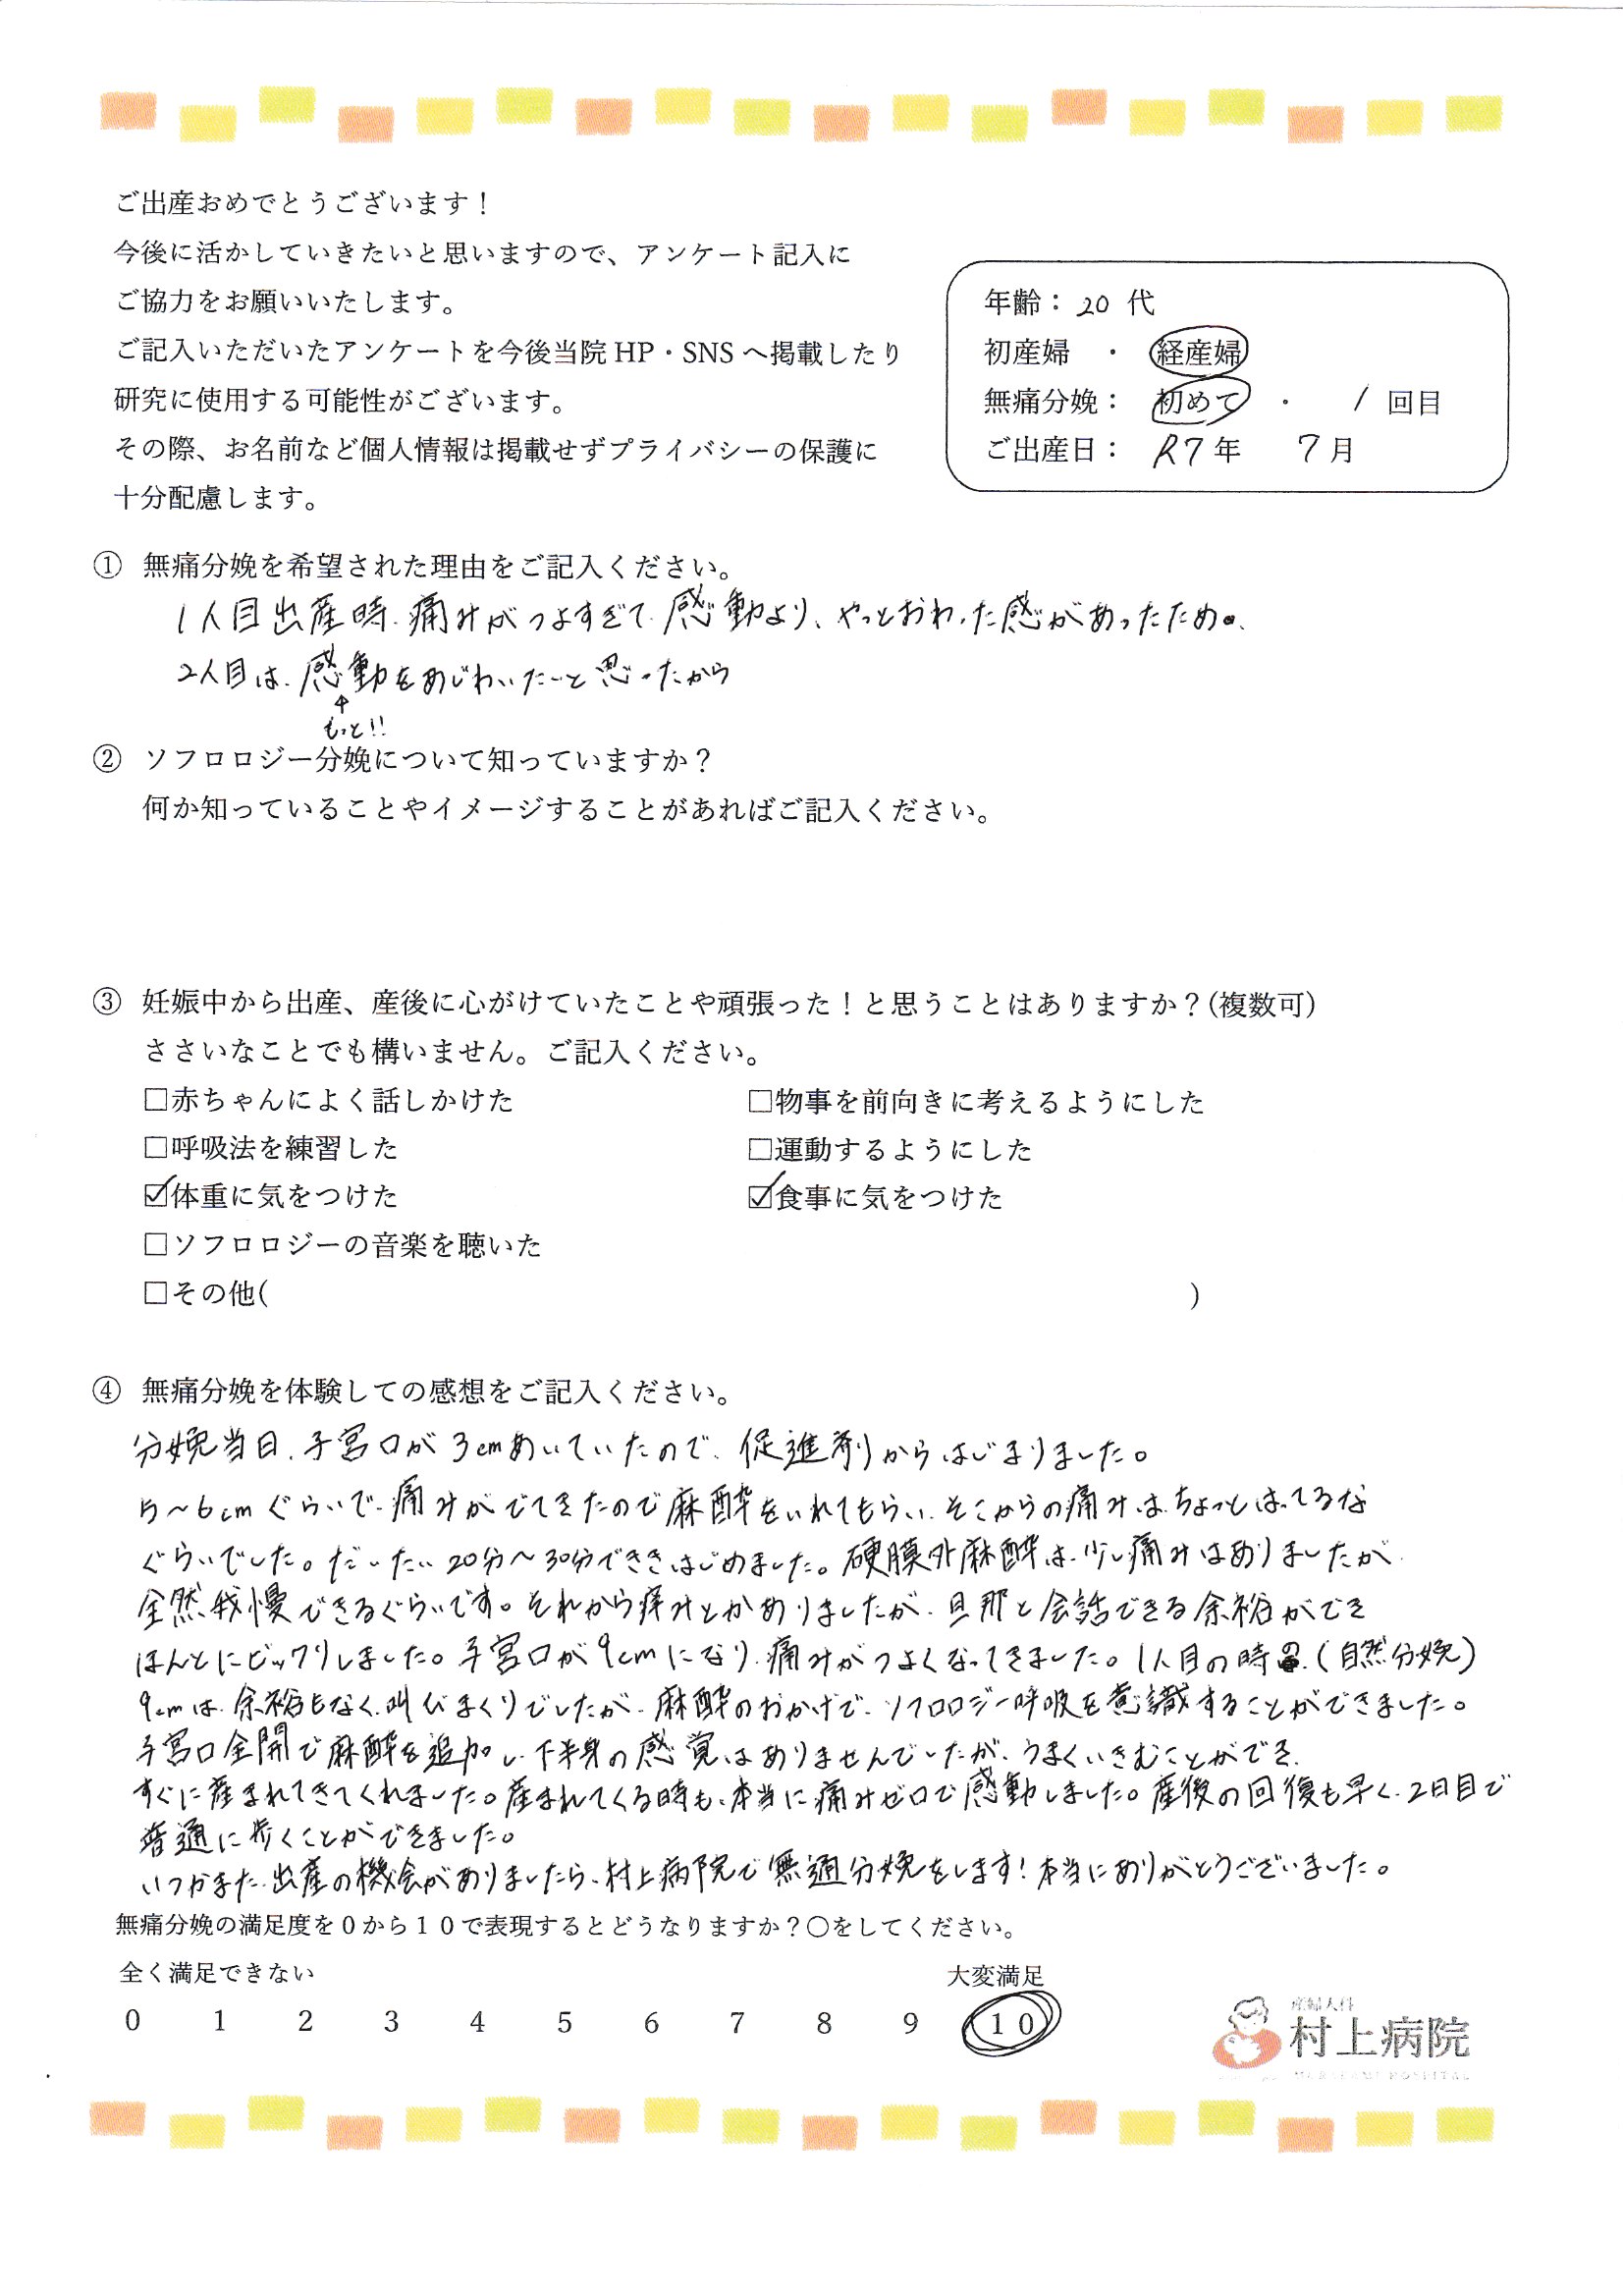 ご出産おめでとうございます！
今後に活かしていきたいと思いますので、アンケート記入に
ご協力をお願いいたします。
ご記入いただいたアンケートを今後当院HP・SNSへ掲載したり
研究に使用する可能性がございます。
その際、お名前など個人情報は掲載せずプライバシーの保護に
十分配慮します。
年齢：20 代
初産婦 ・ 経産婦
無痛分娩： 初めて ・ / 回目
ご出産日： R7年 7月
① 無痛分娩を希望された理由をご記入ください。
1人目出産時、痛みがつよすぎて、感動より、やっとおわった感があったため。
2人目は、感動をあじわいたいと思ったから
↑
もっと!!
② ソフロロジー分娩について知っていますか？
何か知っていることやイメージすることがあればご記入ください。
③ 妊娠中から出産、産後に心がけていたことや頑張った！と思うことはありますか？(複数可)
ささいなことでも構いません。ご記入ください。
□赤ちゃんによく話しかけた □物事を前向きに考えるようにした
□呼吸法を練習した □運動するようにした
☑体重に気をつけた ☑食事に気をつけた
□ソフロロジーの音楽を聴いた
□その他( )
④ 無痛分娩を体験しての感想をご記入ください。
分娩当日、子宮口が3cmあいていたので、促進剤からはじまりました。
5～6cmぐらいで、痛みがでてきたので麻酔をいれてもらい、そこからの痛みは、ちょっとはってるな
ぐらいでした。だいたい20分～30分でききはじめました。硬膜外麻酔は、少し痛みはありましたが、
全然、我慢できるぐらいです。それから痒みとかありましたが、旦那と会話できる余裕ができ
ほんとにビックリしました。子宮口が9cmになり、痛みがつよくなってきました。1人目の時(自然分娩)
9cmは、余裕もなく、叫びまくりでしたが、麻酔のおかげで、ソフロロジー呼吸を意識することができました。
子宮口全開で麻酔を追加し、下半身の感覚はありませんでしたが、うまくいきむことができ、
すぐに産まれてきてくれました。産まれてくる時も、本当に痛みゼロで感動しました。産後の回復も早く、2日目で
普通に歩くことができました。
いつかまた、出産の機会がありましたら、村上病院で無通分娩をします！本当にありがとうございました。
無痛分娩の満足度を０から１０で表現するとどうなりますか？○をしてください。
全く満足できない 大変満足
0 1 2 3 4 5 6 7 8 9 10
産婦人科
村上病院
MURAKAMI HOSPITAL